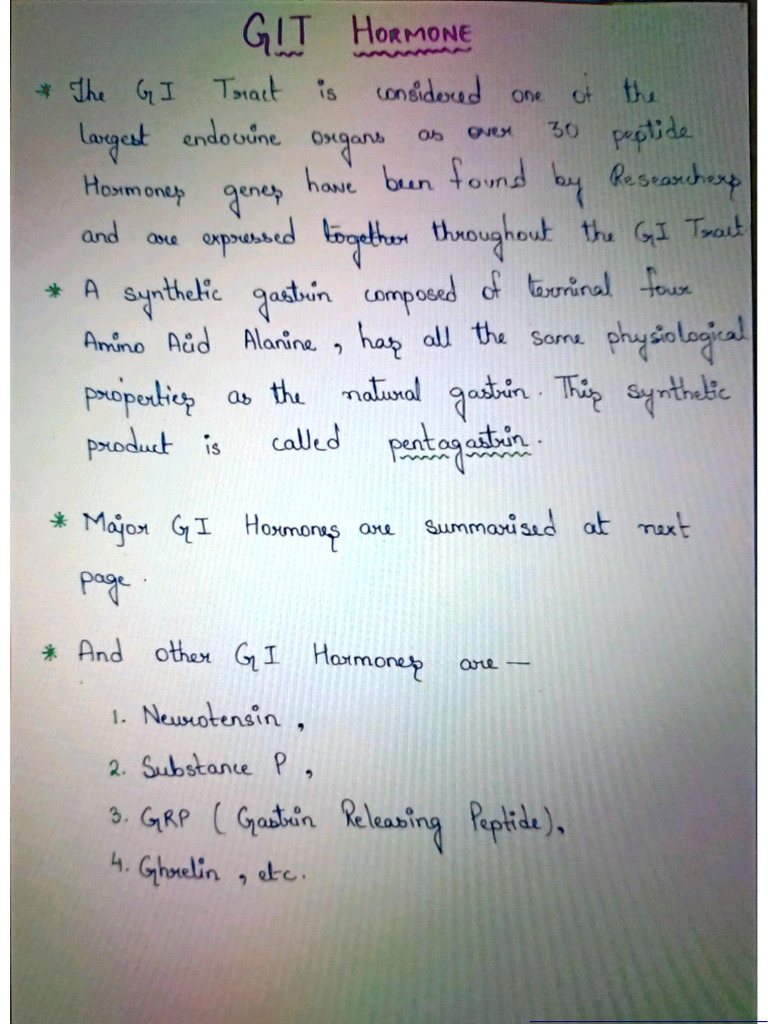 GIT HORMONE
* The GI Tract is considered one of the
largest endocrine organs as over 30 peptide
Hormones genes have been found by Researchers
and are expressed together throughout the GI Tract
* A synthetic gastrin composed of terminal four
Amino Acid Alanine, has all the same physiological
properties as the natural gastrin. This synthetic
product is called pentagastrin.
* Major GI Hormones are summarised at next
page.
* And other GI Hormones are —
1. Neurotensin,
2. Substance P,
3. GRP (Gastrin Releasing Peptide),
4. Ghrelin, etc.